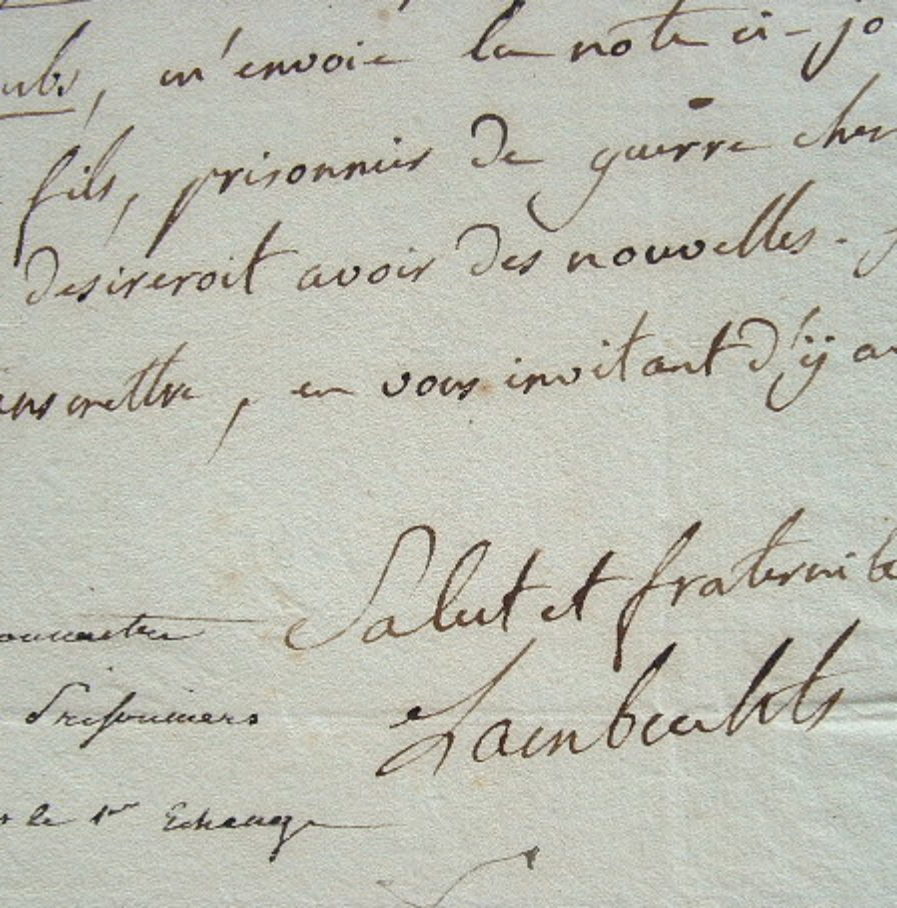 ubs, m'envoie la note ci-jo
fils, prisonnier de guerre chez
desireroit avoir des nouvelles. J
ansmettre, en vous invitant d'y av
Salut et fraternité
Lambrechts
Prisonniers
le 1er Echange